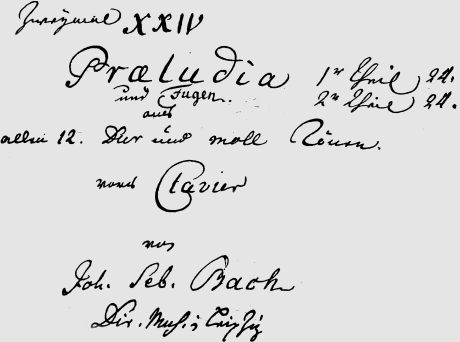 Zweymal XXIV
Præludia 1r Theil 24.
und Fugen. 2r Theil 24.
aus
allen 12. Dur und moll Tönen.
vors Clavier
von
Joh. Seb. Bach
Dir. Mus. i Leipzig